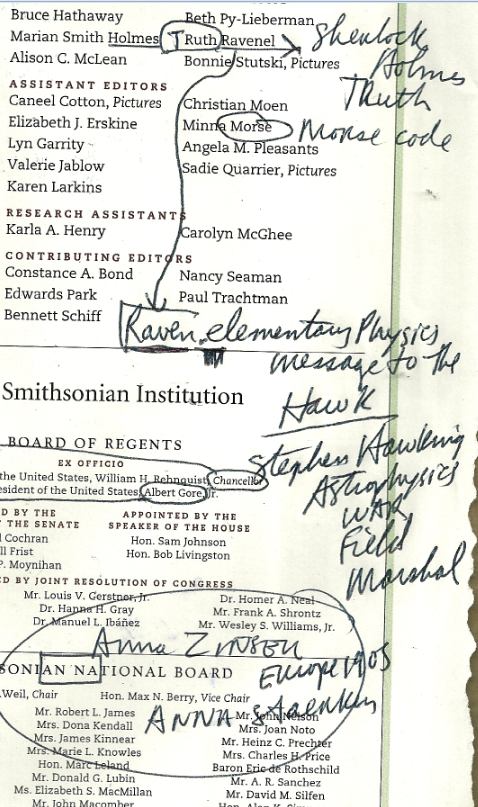 Bruce Hathaway
Beth Py-Lieberman
Marian Smith Holmes
T Ruth Ravenel
Sherlock
Holmes
Alison C. McLean
Bonnie Stutski, Pictures
Truth
ASSISTANT EDITORS
Caneel Cotton, Pictures
Christian Moen
Elizabeth J. Erskine
Minna Morse
Morse code
Lyn Garrity
Angela M. Pleasants
Valerie Jablow
Sadie Quarrier, Pictures
Karen Larkins
RESEARCH ASSISTANTS
Karla A. Henry
Carolyn McGhee
CONTRIBUTING EDITORS
Constance A. Bond
Nancy Seaman
Edwards Park
Paul Trachtman
Bennett Schiff
Raven elementary Physics
message to the
Hawk
Smithsonian Institution
BOARD OF REGENTS
Stephen Hawking
EX OFFICIO
the United States, William H. Rehnquist, Chancellor
Astrophysics
resident of the United States, Albert Gore, Jr.
WAR
Field
Marshal
D BY THE
T THE SENATE
APPOINTED BY THE
SPEAKER OF THE HOUSE
Cochran
Hon. Sam Johnson
ll Frist
Hon. Bob Livingston
P. Moynihan
ED BY JOINT RESOLUTION OF CONGRESS
Mr. Louis V. Gerstner, Jr.
Dr. Homer A. Neal
Dr. Hanna H. Gray
Mr. Frank A. Shrontz
Dr. Manuel L. Ibáñez
Mr. Wesley S. Williams, Jr.
Anna
SONIAN NATIONAL BOARD
Europe
Weil, Chair
Hon. Max N. Berry, Vice Chair
ANNA
Mr. Robert L. James
Mr. John Nelson
Mrs. Dona Kendall
Mrs. Joan Noto
Mrs. James Kinnear
Mr. Heinz C. Prechter
Mrs. Marie L. Knowles
Mrs. Charles H. Price
Hon. Marc Leland
Baron Eric de Rothschild
Mr. Donald G. Lubin
Mr. A. R. Sanchez
Ms. Elizabeth S. MacMillan
Mr. David M. Silfen
Mr. John Macomber